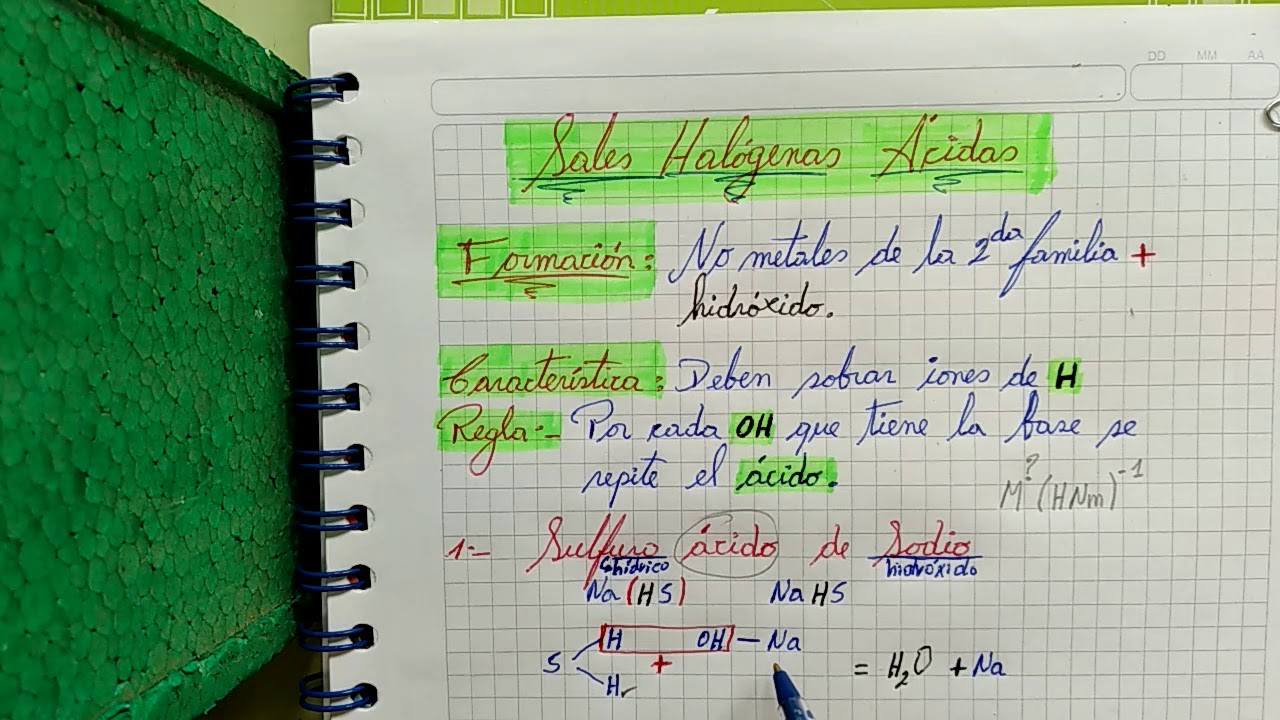 DD MM AA
Sales Halógenas Ácidas
Formación: No metales de la 2da familia +
hidróxido.
Característica: Deben sobrar iones de H
Regla:- Por cada OH que tiene la base se
repite el ácido.
M? (HNm)-1
1:- Sulfuro ácido de Sodio
Shídrico hidróxido
Na(HS) NaHS
H OH - Na
S + = H2O + Na
H